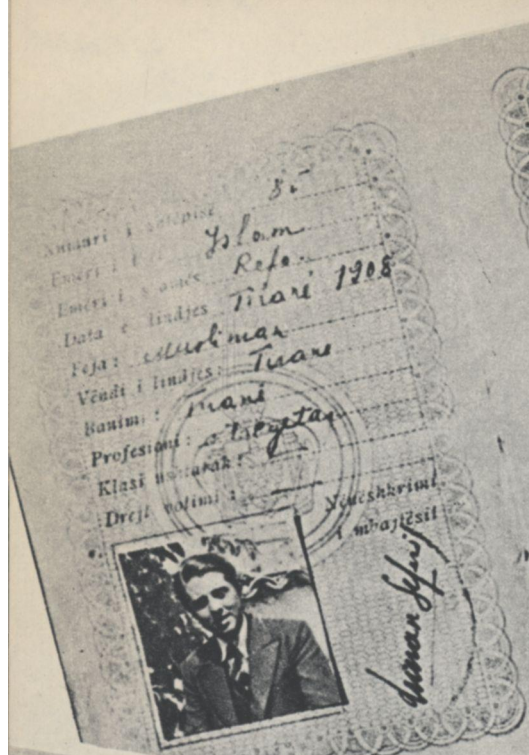 Numuri i shtëpisë 85
Emëri i Islam
Emëri i s amës Refe
Data e lindjes Tiranë 1908
Feja: Musliman
Vëndi i lindjes: Tirane
Banimi: Tiranë
Profesioni:
Klasi ushtarak:
Drejt votimi:
Nëneshkrimi
i mbajtësit